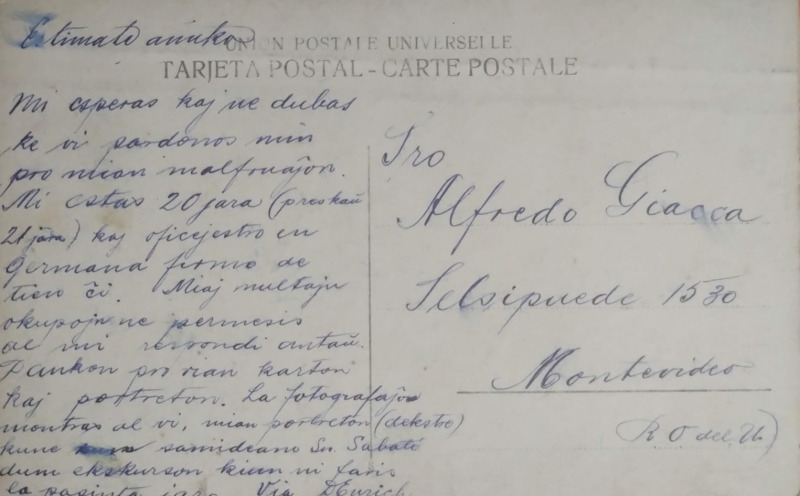 Estimata amiko
UNION POSTALE UNIVERSELLE
TARJETA POSTAL - CARTE POSTALE
Mi esperas kaj ne dubas
ke vi pardonos min
pro mian malfruaĵon.
Mi estas 20 jara (preskaŭ
21 jara) kaj oficejestro en
Germana firmo de
tien ĉi. Miaj multaju
okupojn ne permesis
al mi respondi antaŭ.
Dankon pro vian karton
kaj portreton. La fotografaĵon
montras al vi, mian portreton (dekstre)
kune samideano Sro. Sabaté
dum ekskurson kiun ni faris
la pasinta jaro. Via
Sro
Alfredo Giacca
Selsipuede 1530
Montevideo
R O del U)